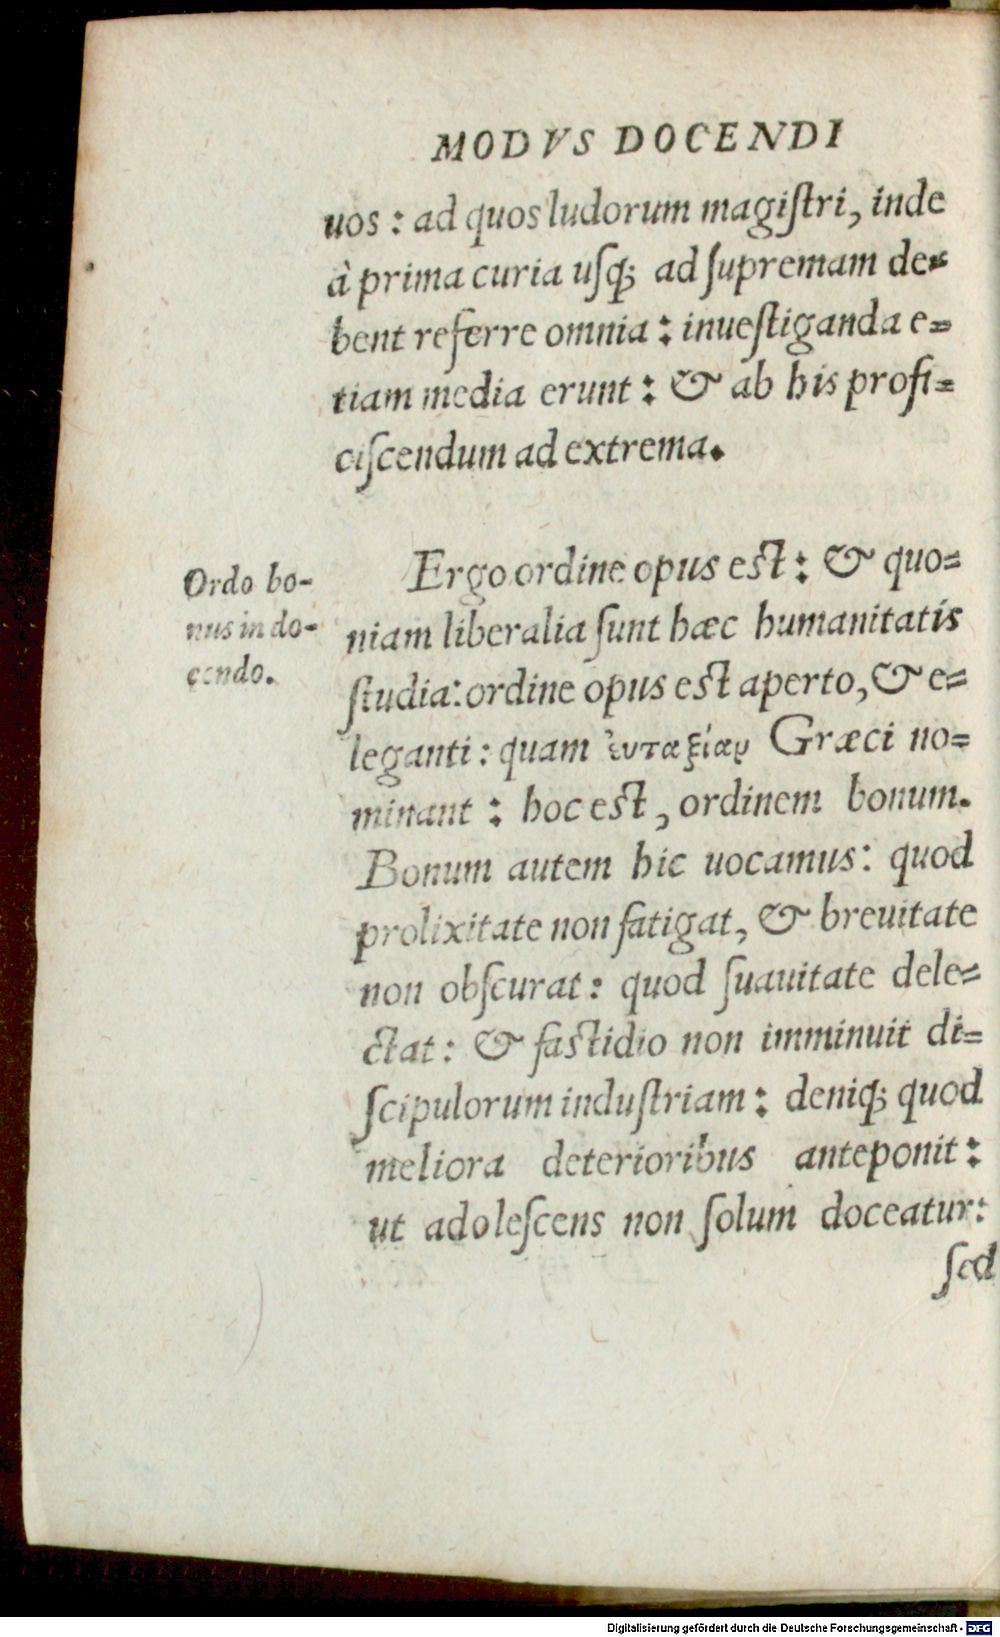 MODVS DOCENDI
uos : ad quos ludorum magiſtri, inde
à prima curia uſq; ad ſupremam de=
bent referre omnia : inueſtiganda e=
tiam media erunt : & ab his profi=
ciſcendum ad extrema.
Ordo bo-
nus in do-
cendo.
Ergo ordine opus eſt : & quo=
niam liberalia ſunt hæc humanitatis
ſtudia: ordine opus eſt aperto, & e=
leganti : quam ἐυταξίαν Græci no=
minant : hoc eſt, ordinem bonum.
Bonum autem hic uocamus: quod
prolixitate non fatigat, & breuitate
non obſcurat: quod ſuauitate dele=
ctat: & faſtidio non imminuit di=
ſcipulorum induſtriam: deniq; quod
meliora deterioribus anteponit:
ut adoleſcens non ſolum doceatur:
ſed
Digitalisierung gefördert durch die Deutsche Forschungsgemeinschaft - DFG